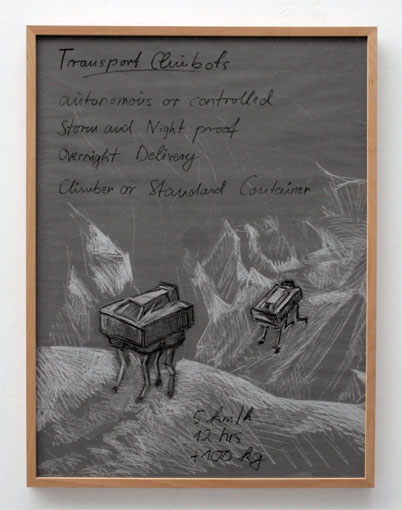 Transport Climbots
autonomous or controlled
Storm and Night proof
Overnight Delivery
Climber or Standard Container
5 km/h
12 hrs
+100 kg